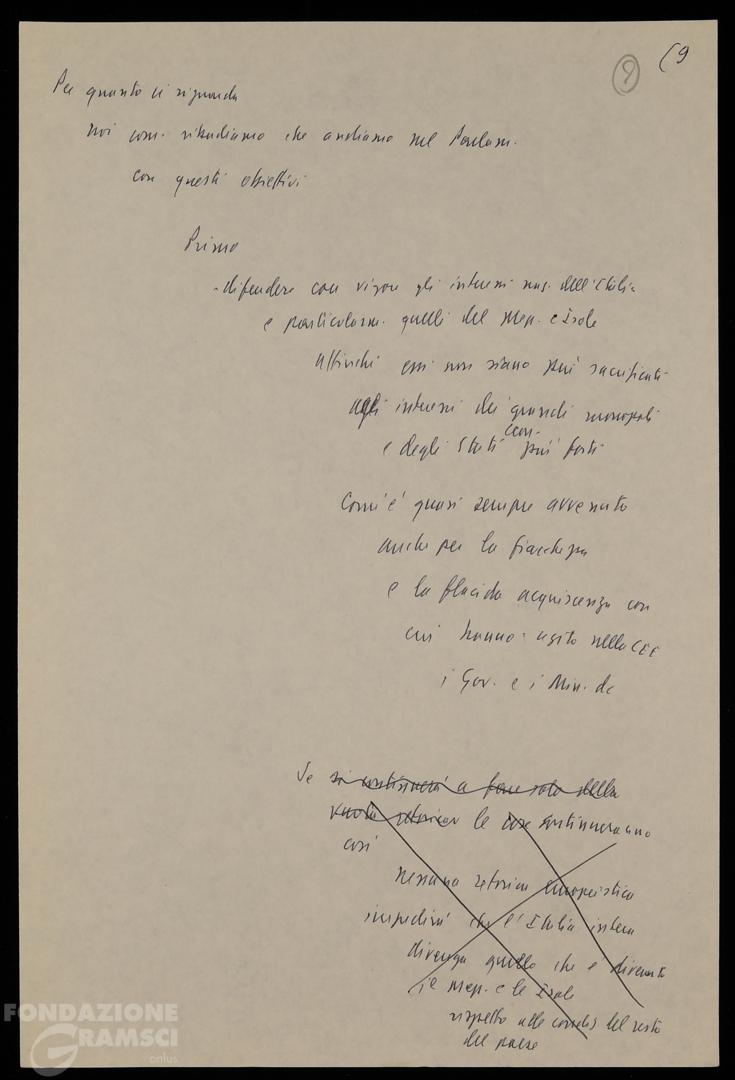 9
(9
Per quanto ci riguarda
noi com. ribadiamo che andiamo nel Parlam.
con questi obiettivi
Primo
- difendere con vigore gli interessi naz. dell'Italia
e particolarm. quelli del Mez. e Isole
affinché essi non siano più sacrificati
agli interessi dei grandi monopoli
econ.
e degli Stati più forti
Com'è quasi sempre avvenuto
anche per la fiacchezza
e la placida acquiscenza con
cui hanno agito nella CEE
i Gov. e i Min. dc
Se si continuerà a fare solo della
vuota retorica le cose continueranno
così
nessuna retorica europeistica
impedirà che l'Italia intera
divenga quello che è divenuto
il Mez. e le Isole
rispetto alle del resto
del paese
FONDAZIONE
GRAMSCI
onlus